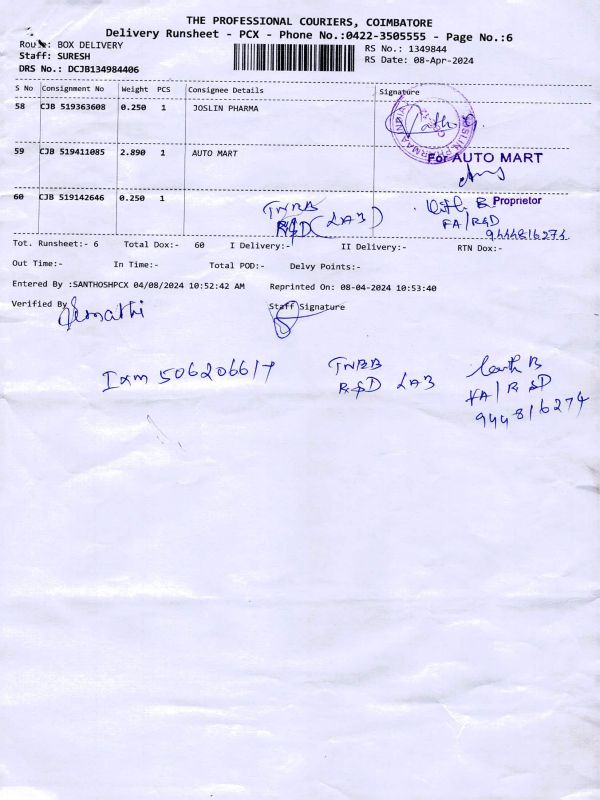 THE PROFESSIONAL COURIERS, COIMBATORE
Delivery Runsheet - PCX - Phone No.:0422-3505555 - Page No.:6
Route: BOX DELIVERY
RS No.: 1349844
Staff: SURESH
RS Date: 08-Apr-2024
DRS No.: DCJB134984406
S No Consignment No Weight PCS Consignee Details Signature
58 CJB 519363608 0.250 1 JOSLIN PHARMA
59 CJB 519411085 2.890 1 AUTO MART
For AUTO MART
Proprietor
60 CJB 519142646 0.250 1
R&D (LAB)
FA/R&D
9444816274
Tot. Runsheet:- 6 Total Dox:- 60 I Delivery:- II Delivery:- RTN Dox:-
Out Time:- In Time:- Total POD:- Delvy Points:-
Entered By :SANTHOSHPCX 04/08/2024 10:52:42 AM Reprinted On: 08-04-2024 10:53:40
Verified By Staff Signature
Ixm 506206617
R&D LAB
FA/R&D
9444816274